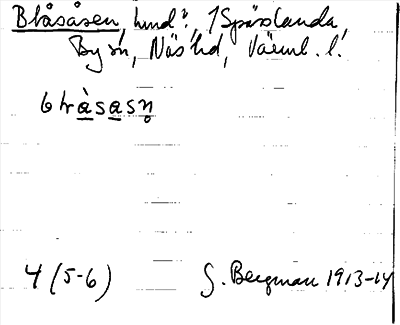 Blåsåsen, hmd?, 1 Spässlanda,
By sn, Näs hd, Värml. l.
blåsasn̥
4 (5-6) G. Bergman 1913-14